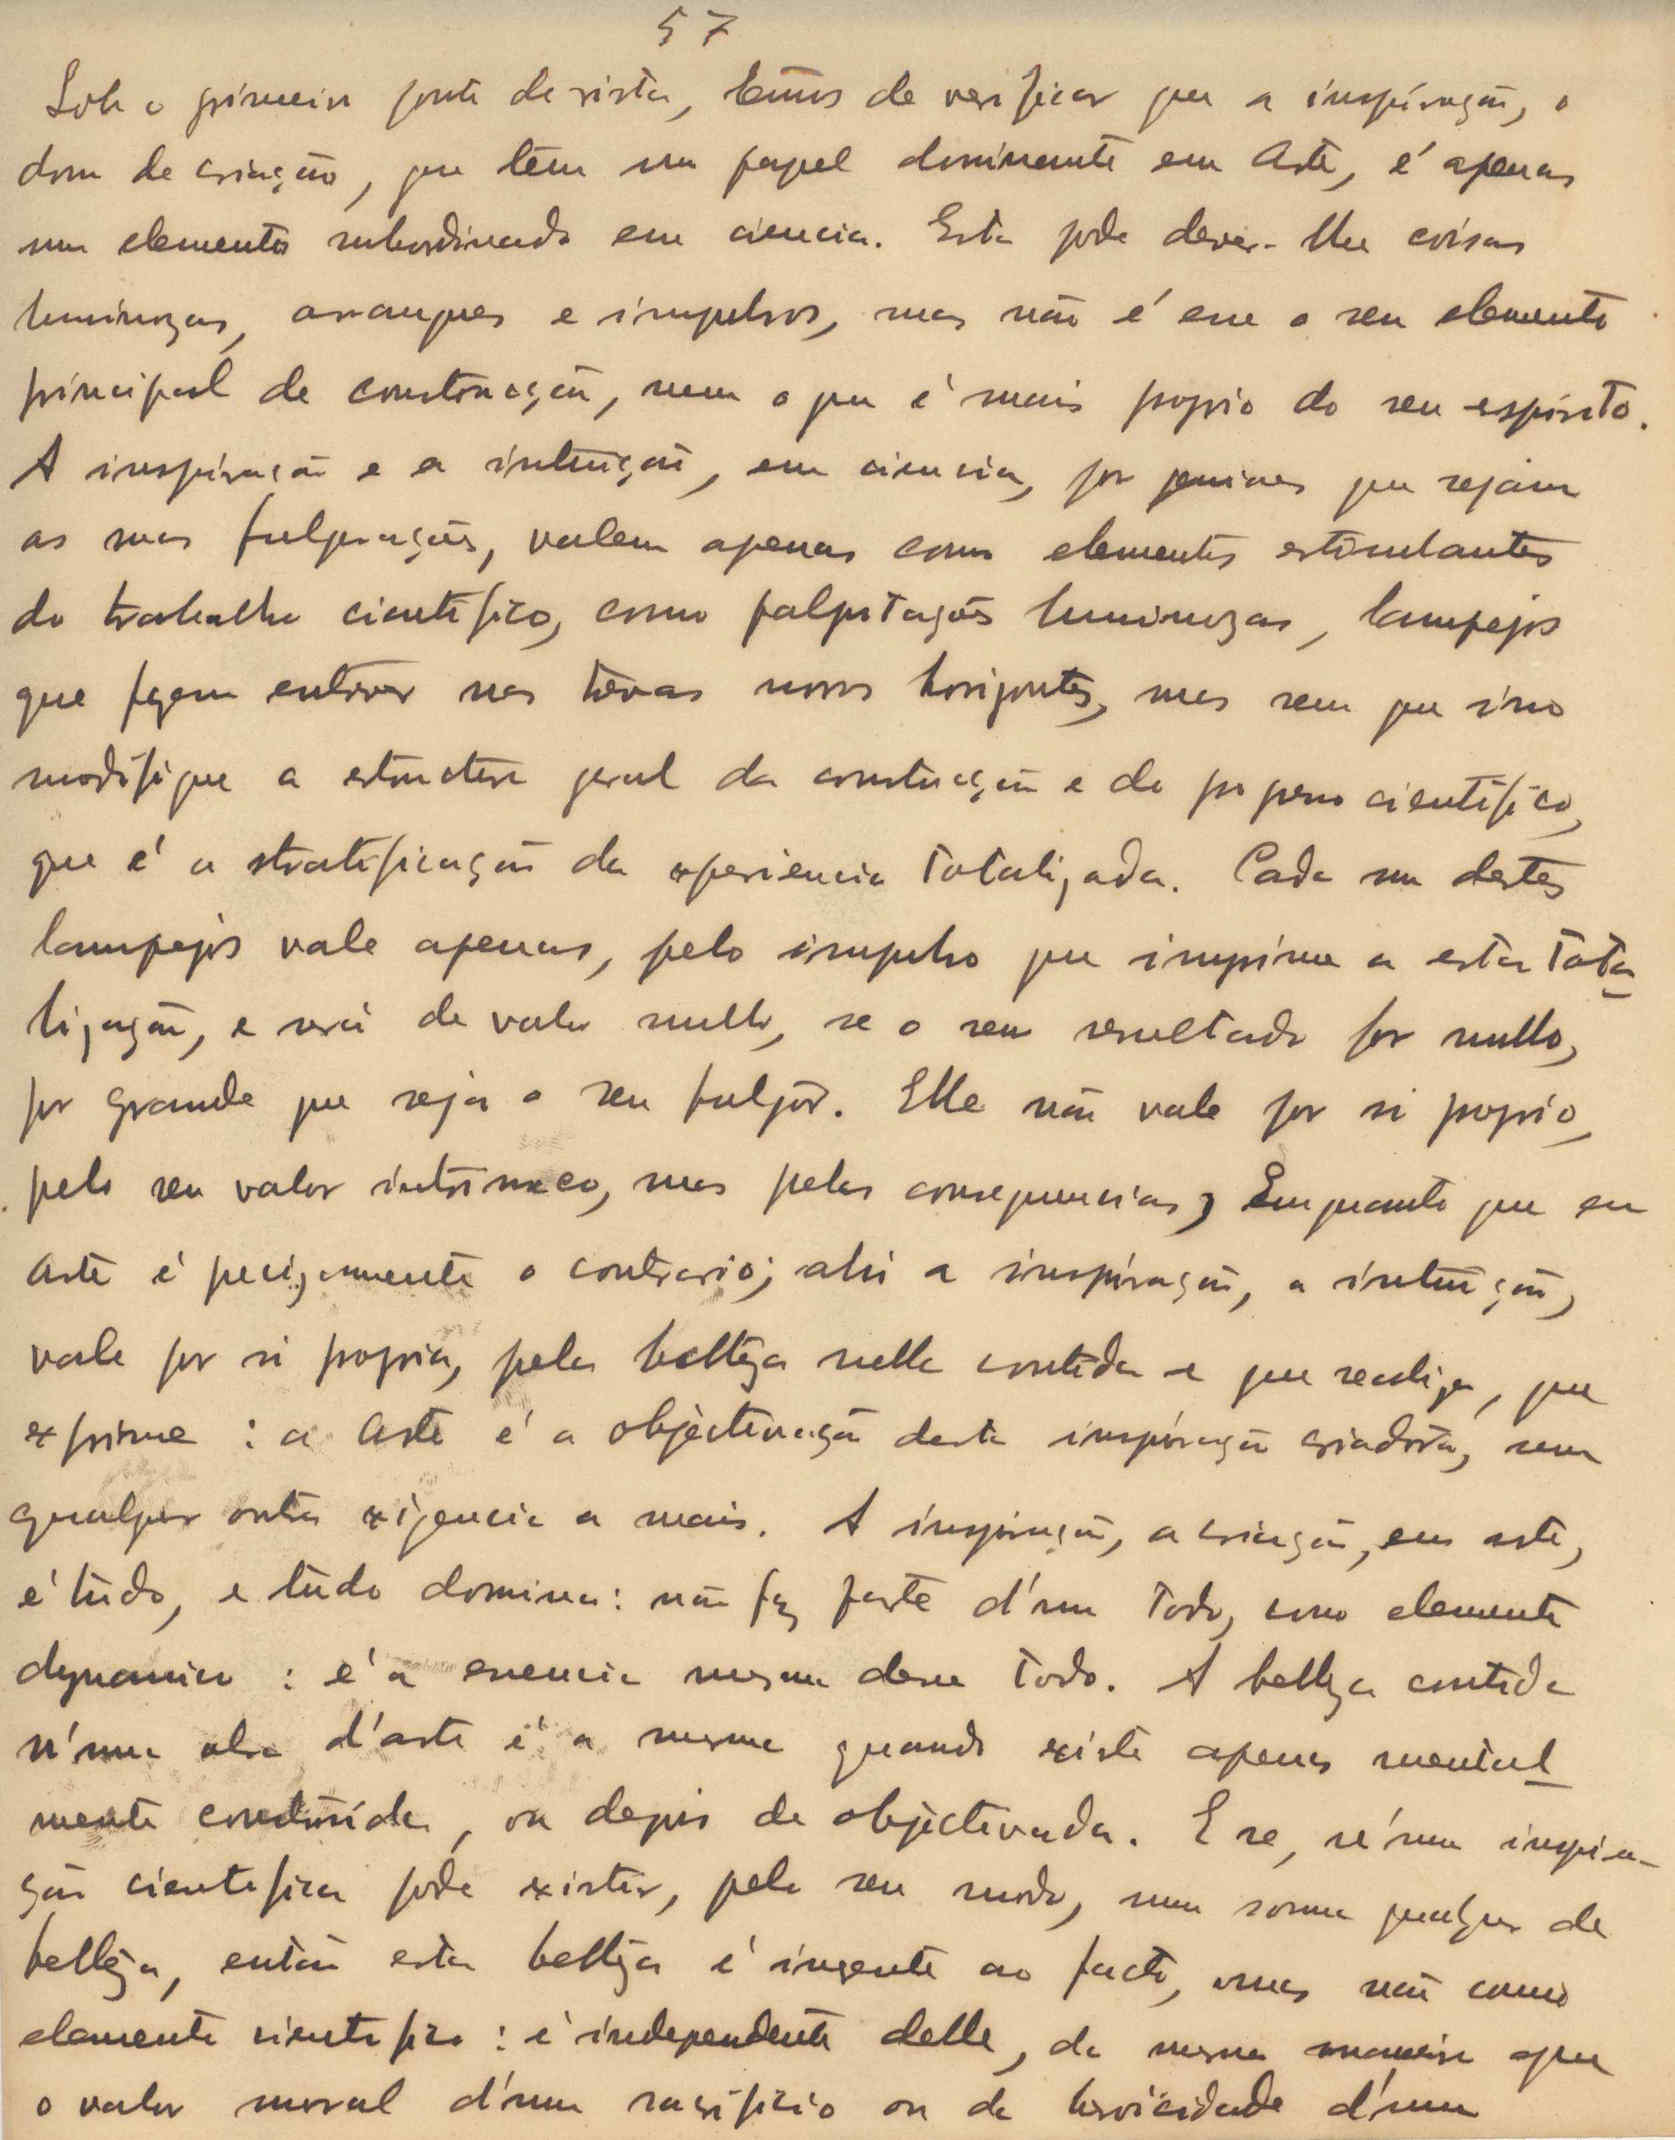 57
Sob o primeiro ponto de vista, temos de verificar que a inspiração, o
dom de criação, que têm um papel dominante em Arte, é apenas
um elemento subordinado em ciencia. Esta pode dever-lhe coisas
luminozas, arranques e impulsos, mas não é esse o seu elemento
principal de construcção, nem o que é mais proprio do seu espírito.
A inspiração e a intuição, em ciencia, por geniaes que sejam
as suas fulgurações, valem apenas como elementos estimulantes
do trabalho cientifico, como palpitações luminozas, lampejos
que fazem entrever nas trevas novos horizontes, mas sem que isso
modifique a estructura geral da construcção e do progresso cientifico,
que é a stratificação da experiencia totalizada. Cada um destes
lampejos vale apenas, pelo impulso que imprime a esta tota-
lização, e será de valor nullo, se o seu resultado for nullo,
por grande que seja o seu fulgôr. Elle não vale por si proprio,
pelo seu valor intrinseco, mas pelas consequencias; Emquanto que em
Arte é precizamente o contrario; ahi a inspiração, a intuição,
vale por si propria, pela belleza nella contida e que realiza, que
exprime : a Arte é a objèctivação desta inspiração criadora, sem
qualquer outra exigencia a mais. A inspiração, a criação, em arte,
é tudo, e tudo domina: não faz parte d'um todo, como elemento
dynamico : é a essencia mesma desse todo. A belleza contida
n'uma obra d'arte é a mesma quando existe apenas mental-
mente construida, ou depois de objèctivada. E se, n'uma inspira-
ção cientifica pode existir, pelo seu modo, uma soma qualquer de
belleza, então esta belleza é ingente ao facto, mas não como
elemento cientifico : é independente delle, da mesma maneira que
o valor moral d'um sacrificio ou da heroicidade d'um